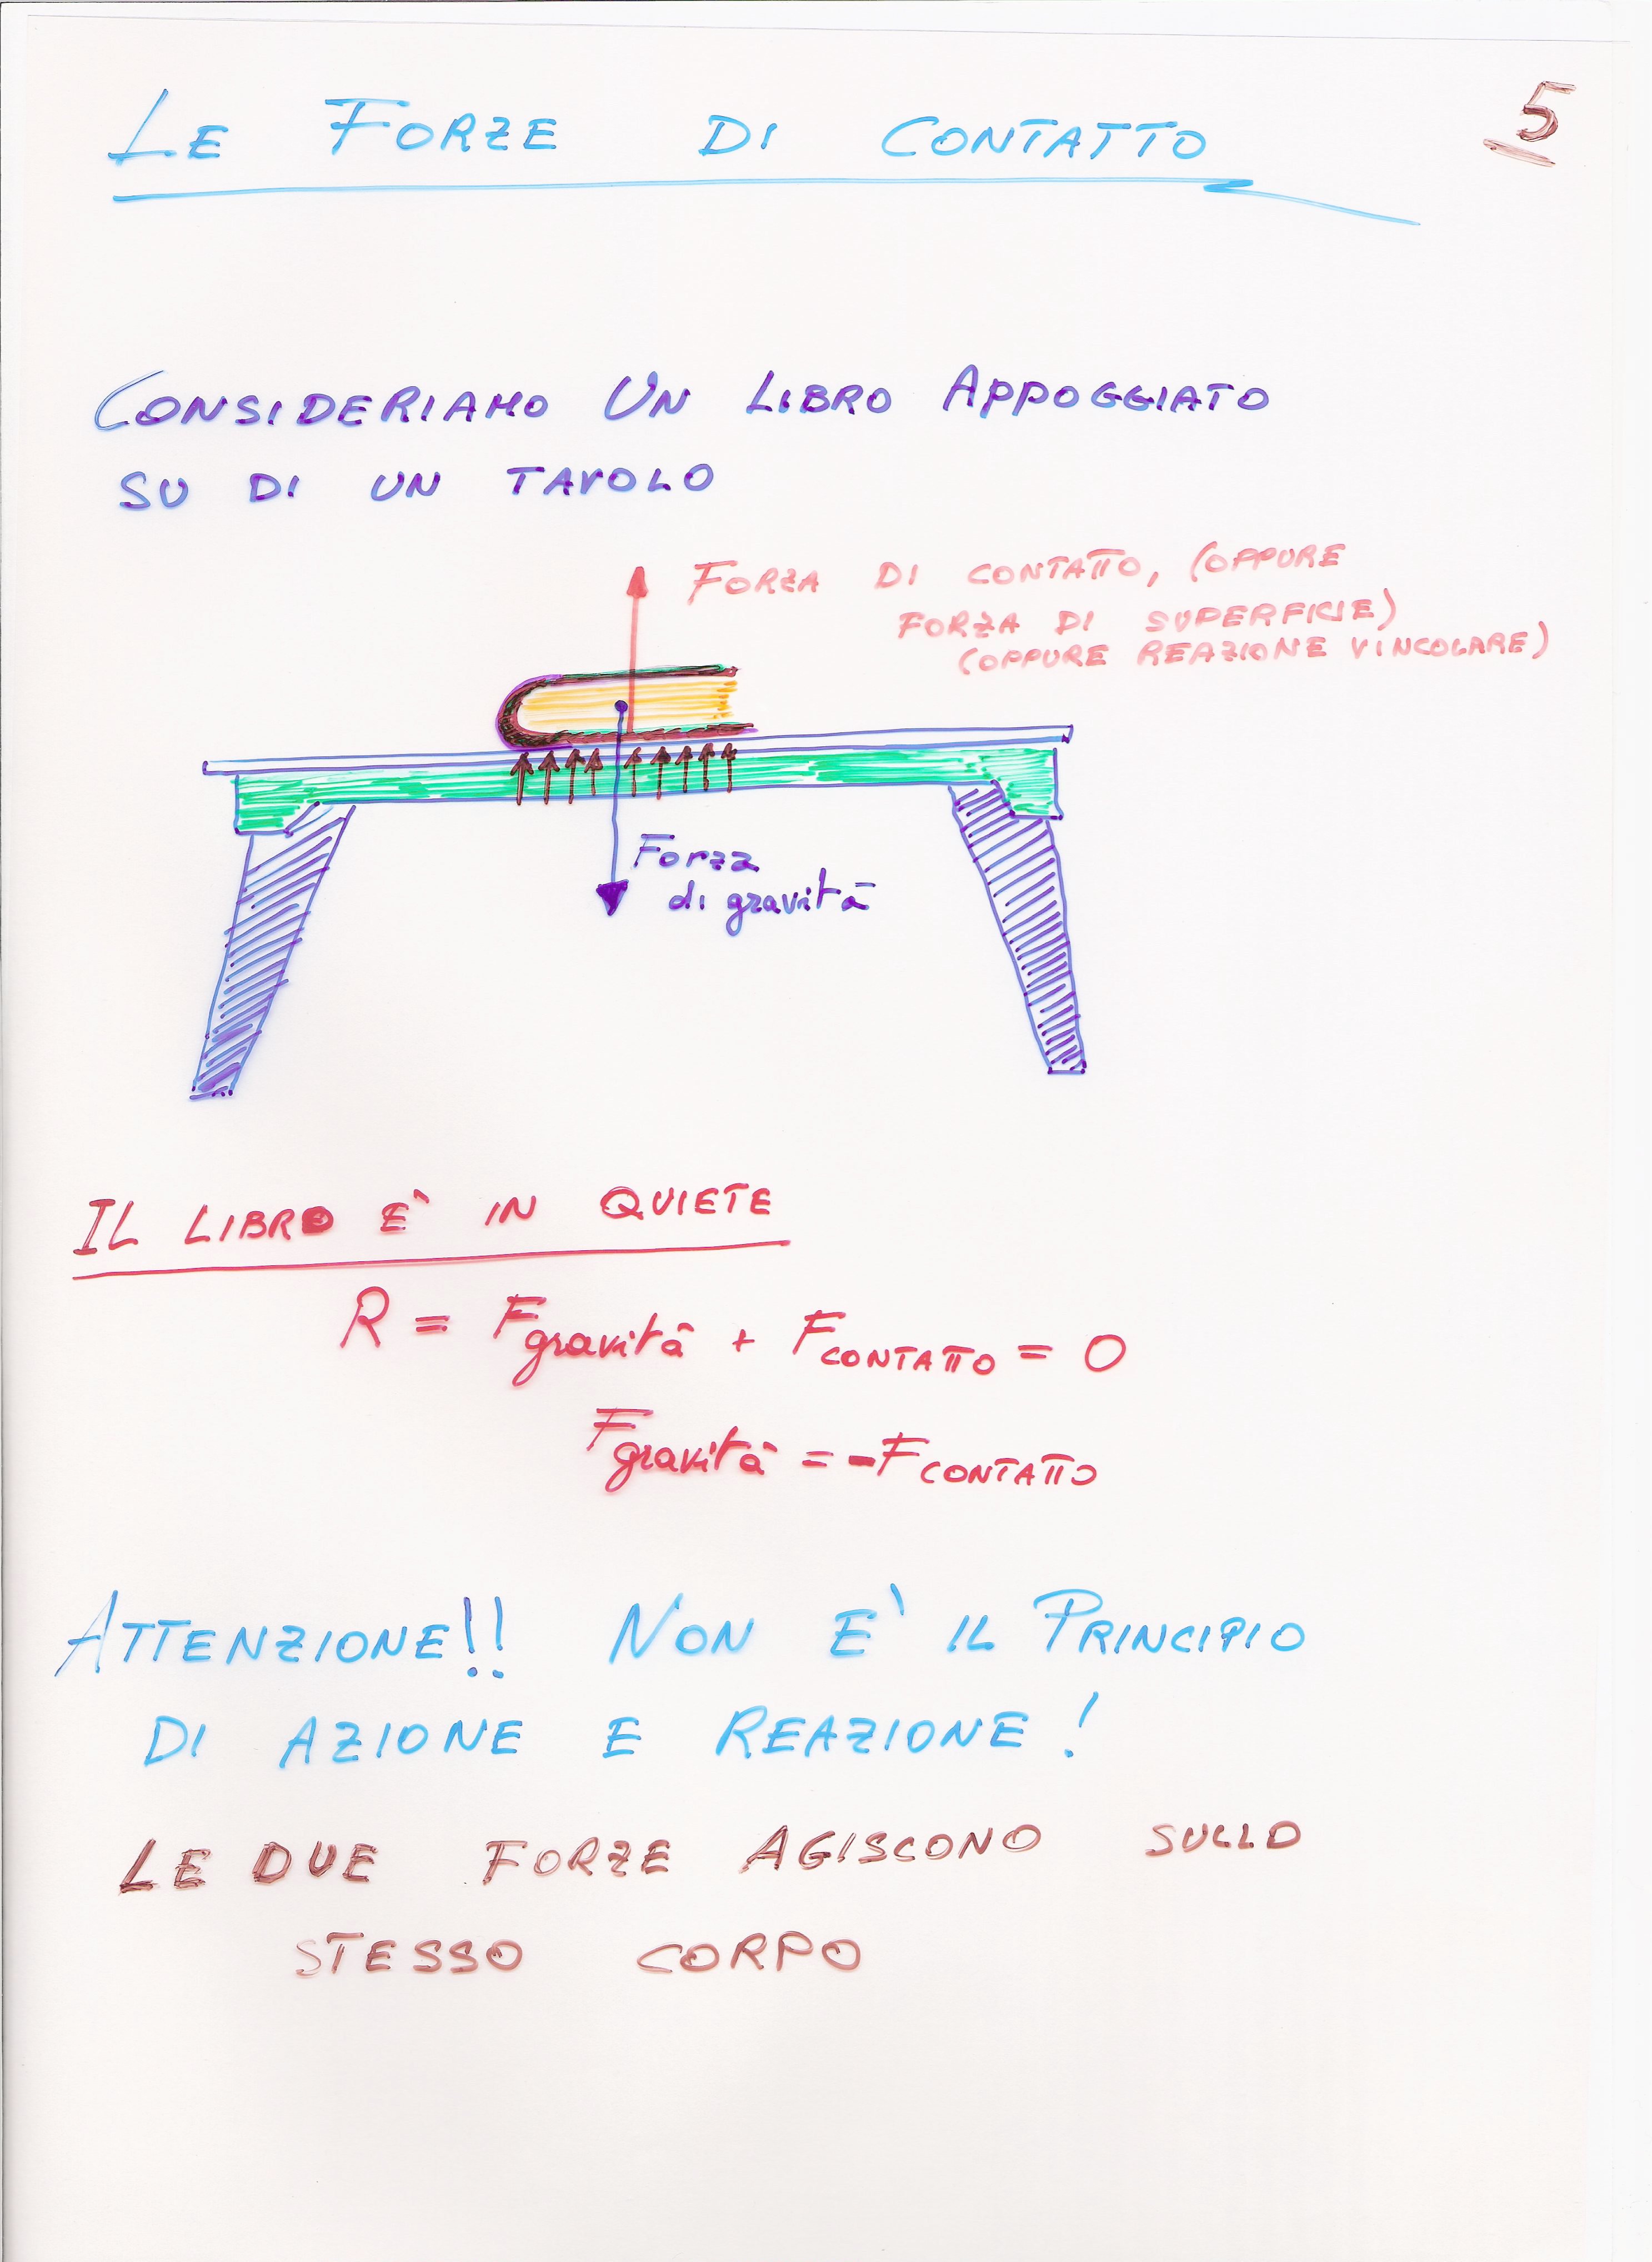 LE FORZE DI CONTATTO
5
CONSIDERIAMO UN LIBRO APPOGGIATO
SU DI UN TAVOLO
FORZA DI CONTATTO, (OPPURE
FORZA DI SUPERFICIE)
(OPPURE REAZIONE VINCOLARE)
Forza
di gravità
IL LIBRO E' IN QUIETE
R = Fgravità + FCONTATTO = 0
Fgravità = -FCONTATTO
ATTENZIONE!! NON E' IL PRINCIPIO
DI AZIONE E REAZIONE!
LE DUE FORZE AGISCONO SULLO
STESSO CORPO